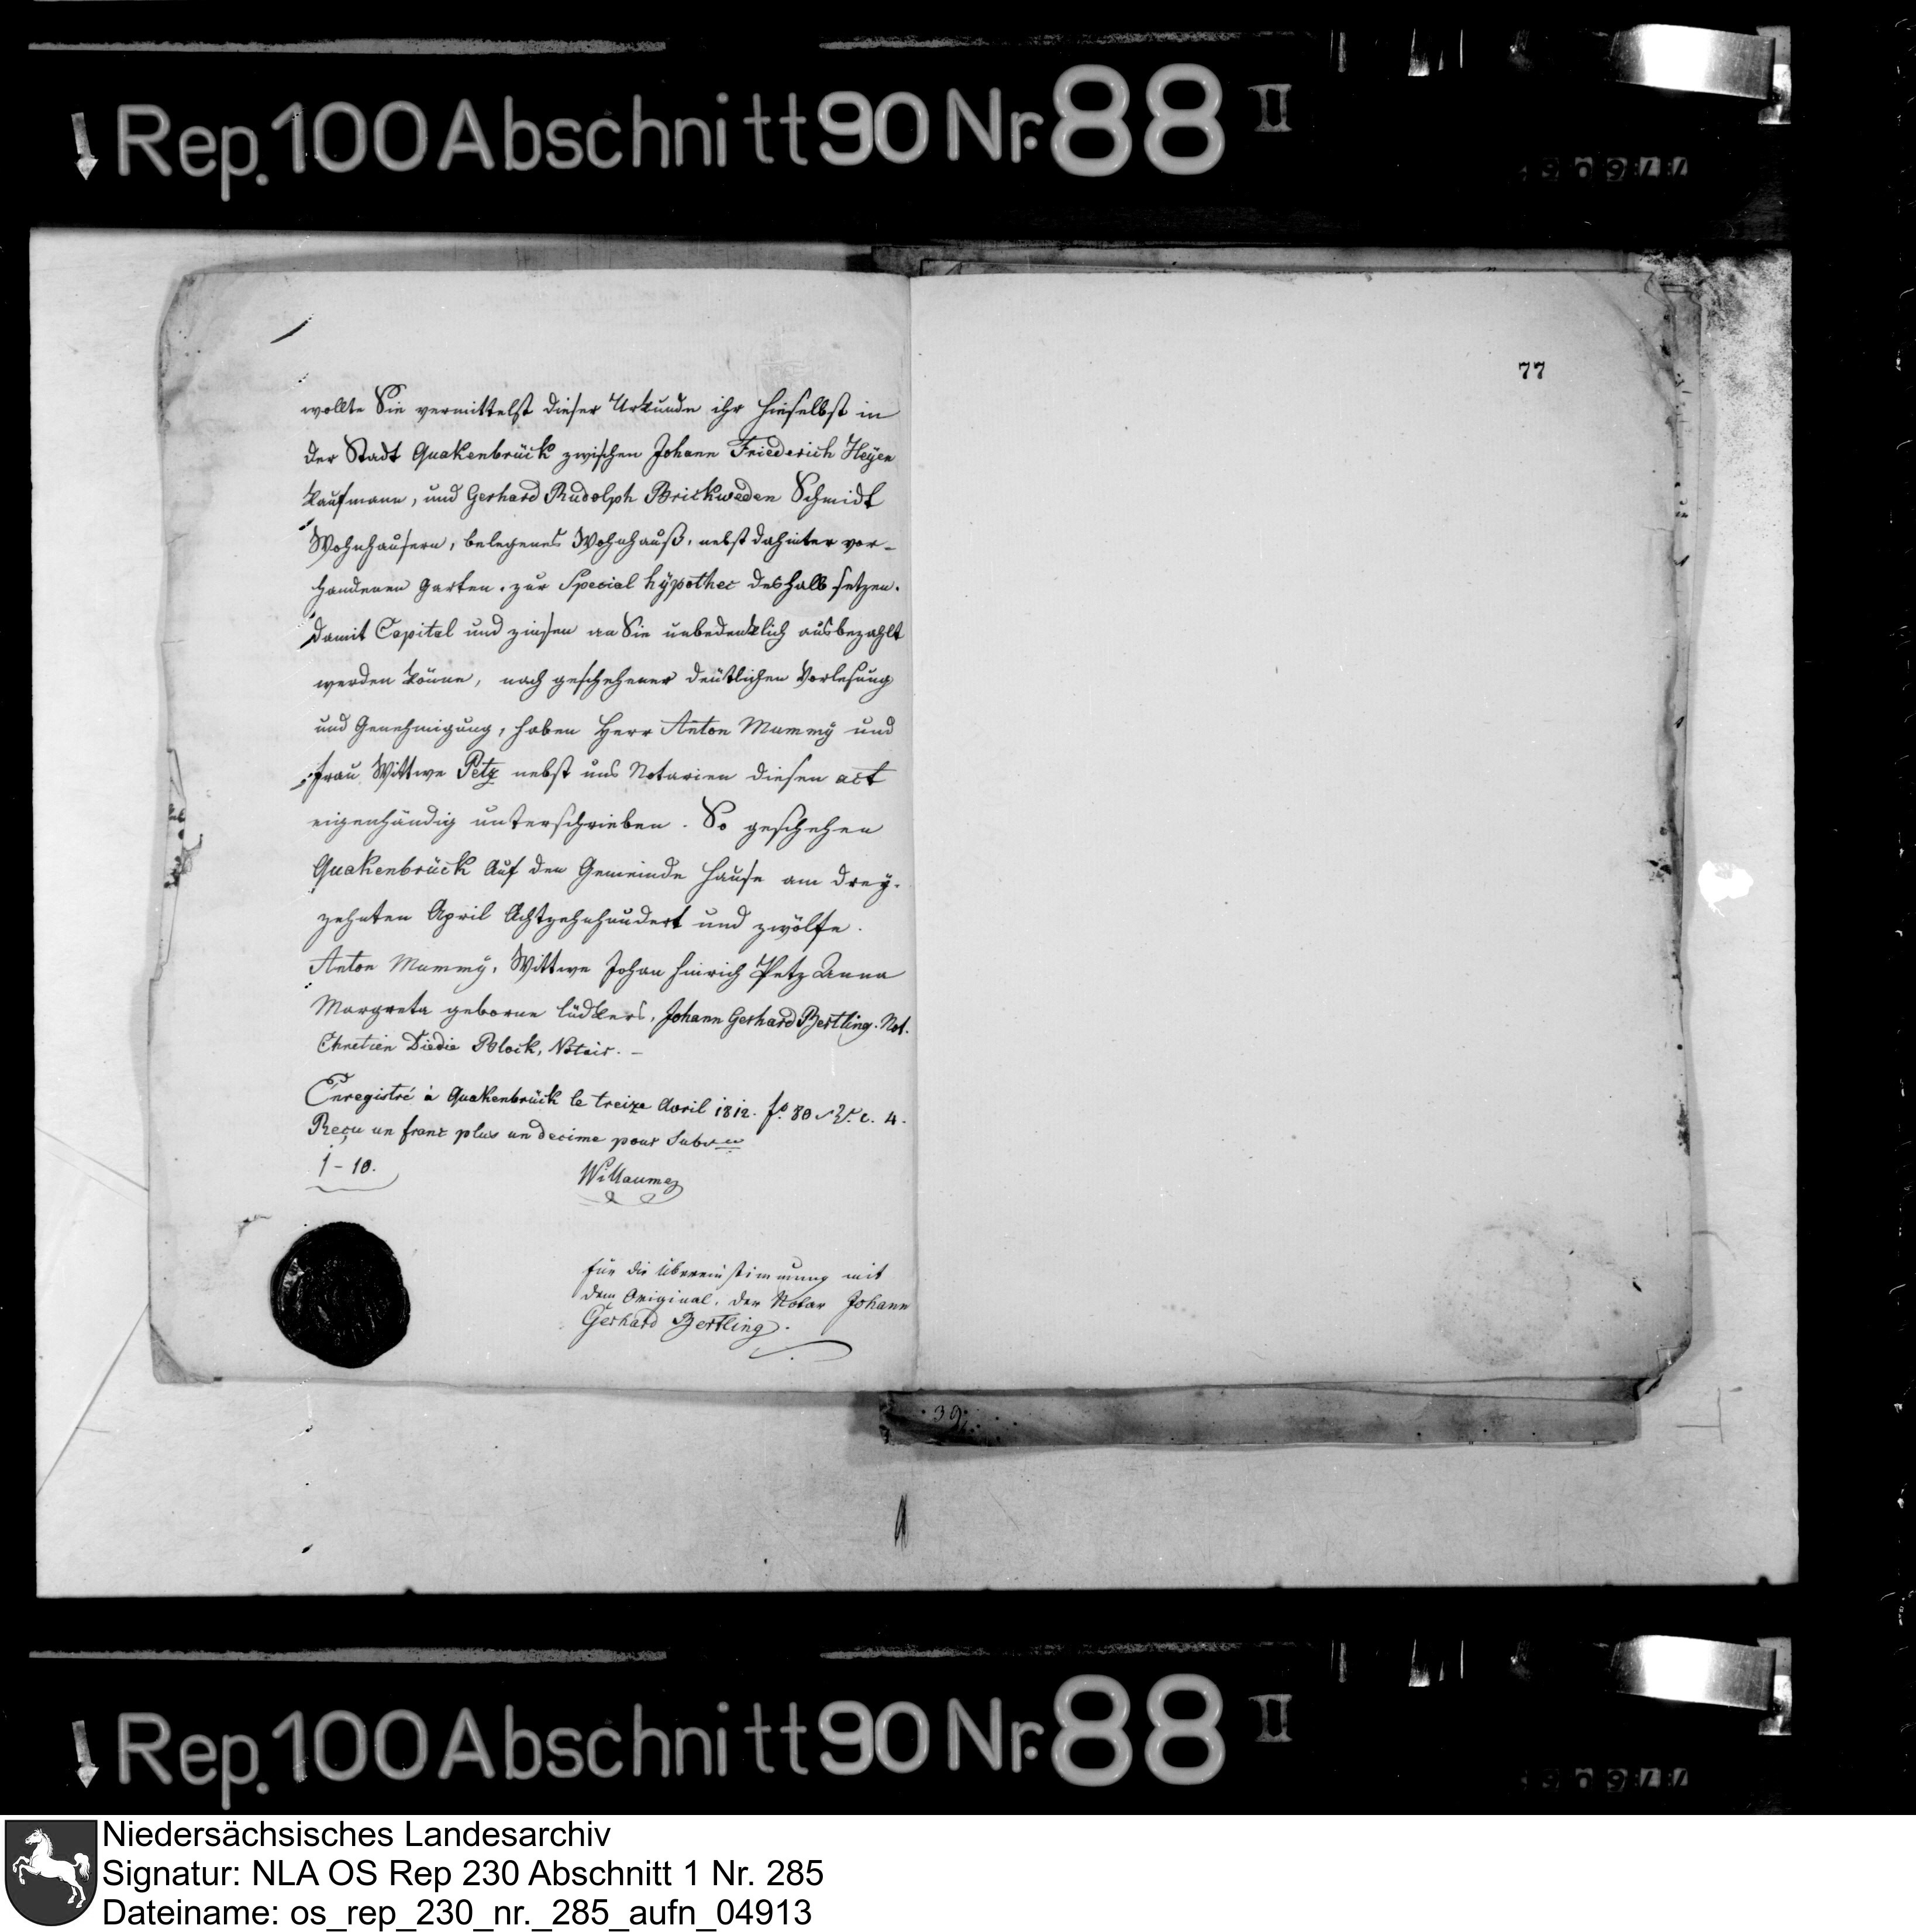 Rep. 100 Abschnitt 90 Nr. 88 II
77
wollte Sie vermittelst dieser Urkunde ihr hieselbst in
der Stadt Quakenbrück zwischen Johann Friederich Heÿen
Kaufmann, und Gerhard Rudolph Brickweden Schmidt
Wohnhausern, belegenes Wohnhauß, nebst dahinter vor-
handenen Garten, zur Special hÿpothec deshalb setzen.
damit Capital und zinsen an Sie unbedenklich ausbezahlt
werden könne, nach geschehener deutlichen Vorlesung
und Genehmigung, haben Herr Anton Mummÿ und
frau Wittwe Petz nebst uns Notarien diesen act
eigenhändig unterschrieben. So geschehen
Quakenbrück Auf den Gemeinde Hause am dreÿ-
zehnten April Achtzehnhundert und zwölfe.
Anton Mummÿ, Wittwe Johan Hinrich Petz Anna
Margreta geborne Lüdkers, Johann Gerhard Bertling. Not.
Chretien Diedie Block, Notair. -
Enregistré à Quakenbrück le treize Avril 1812. fo. 80 c. 4.
Reçu un franc plus un decime pour Subv.en
1-10.
Willaumez
für die Übereinstimmung mit
dem Original, der Notar Johann
Gerhard Bertling.
39
Rep. 100 Abschnitt 90 Nr. 88 II
Niedersächsisches Landesarchiv
Signatur: NLA OS Rep 230 Abschnitt 1 Nr. 285
Dateiname: os_rep_230_nr._285_aufn_04913